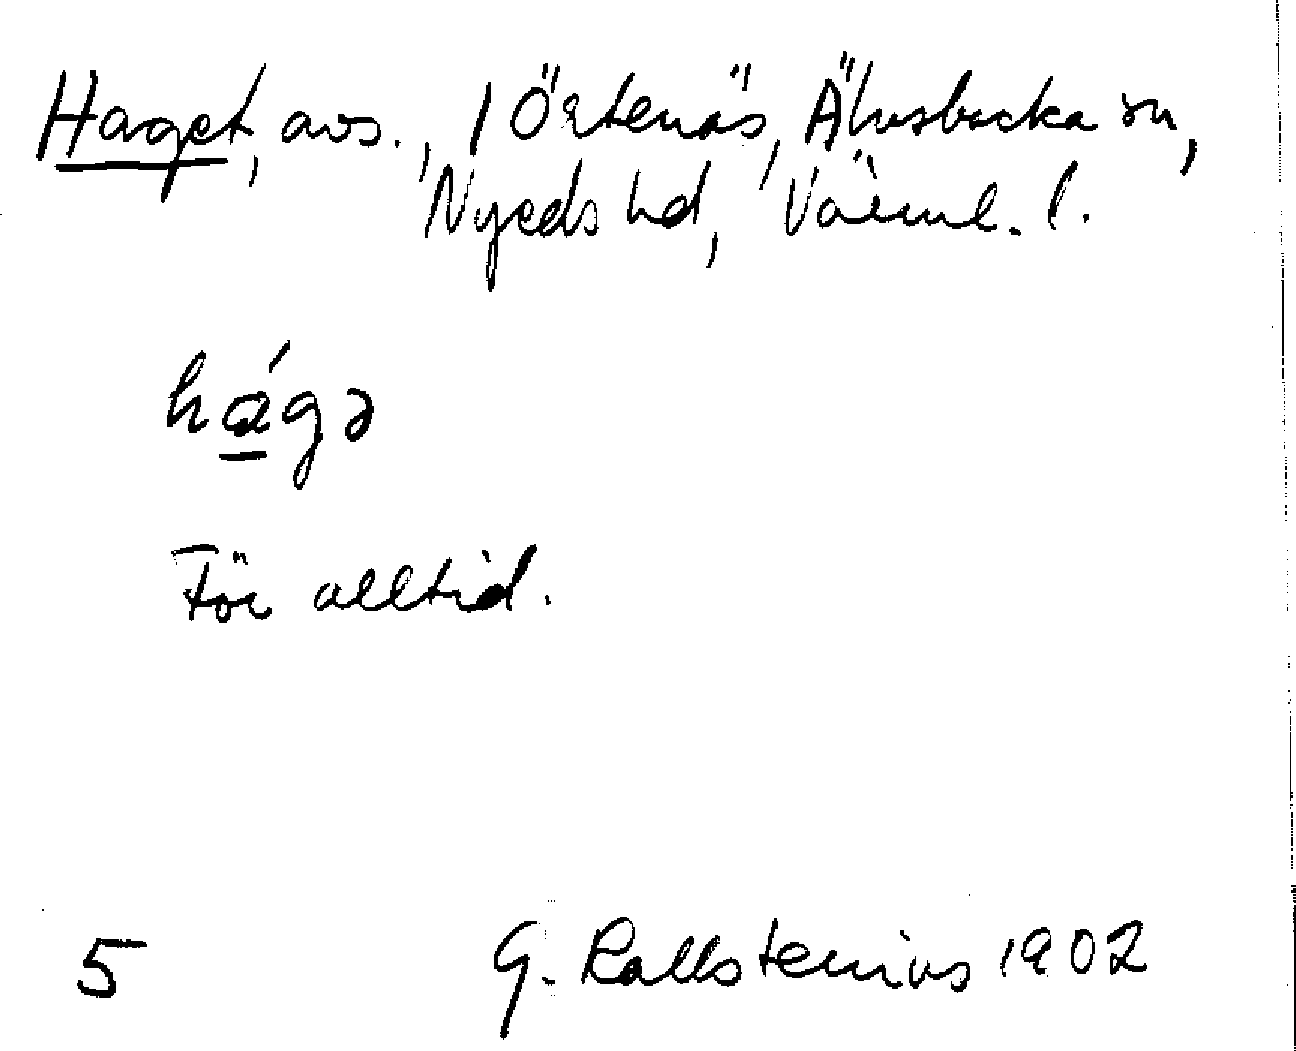 Haget, avs., / Örtenäs, Älvsbacka sn,
Nyeds hd, Värml. l.
hágə
För alltid.
5 G. Kallstenius 1902